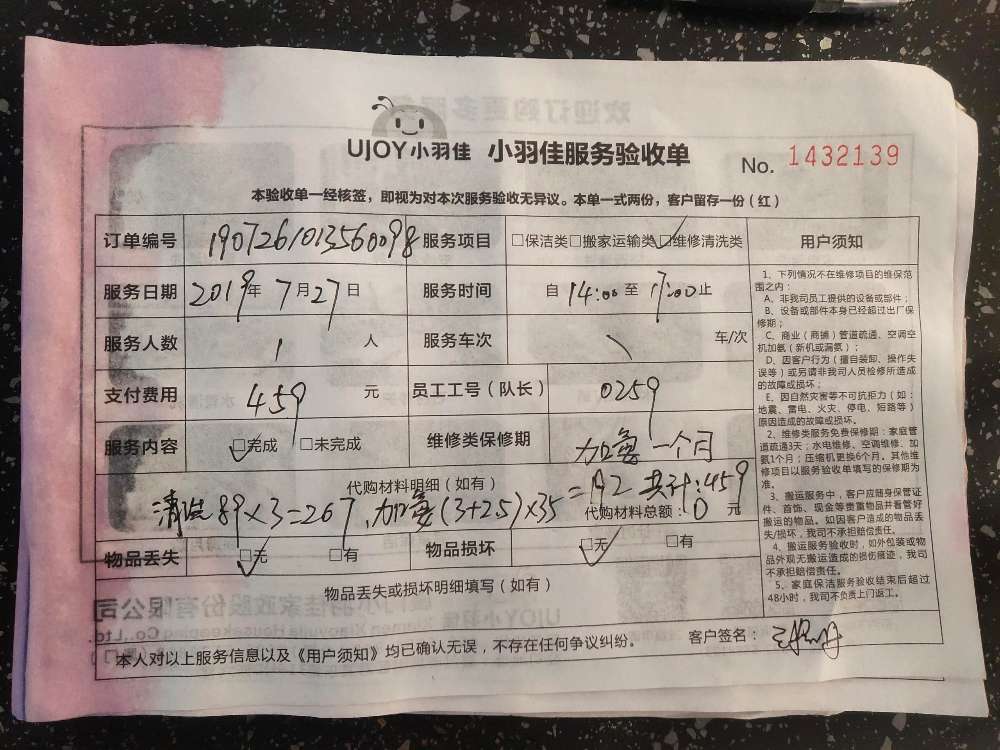 UJOY小羽佳 小羽佳服务验收单 No. 1432139
本验收单一经核签，即视为对本次服务验收无异议。本单一式两份，客户留存一份（红）
订单编号 1907261013560098 服务项目 □保洁类□搬家运输类□维修清洗类
服务日期 2019年7月27日 服务时间 自14:00至17:00止
服务人数 1 人 服务车次 车/次
支付费用 459 元 员工工号（队长） 0259
服务内容 □完成 □未完成 维修类保修期 加氨一个月
代购材料明细（如有）
清洗89×3=267，加氨(3+2.5)×35=192 共计:459
代购材料总额：0元
物品丢失 □无 □有 物品损坏 □无 □有
物品丢失或损坏明细填写（如有）
本人对以上服务信息以及《用户须知》均已确认无误，不存在任何争议纠纷。 客户签名：
用户须知
1、下列情况不在维修项目的维保范
围之内：
A、非我司员工提供的设备或部件；
B、设备或部件本身已经超过出厂保
修期；
C、商业（商铺）管道疏通、空调空
机加氨（新机或漏氨）；
D、因客户行为（擅自装卸、操作失
误等）或另请非我司人员检修所造成
的故障或损坏；
E、因自然灾害等不可抗拒力（如：
地震、雷电、火灾、停电、短路等）
原因造成的故障或损坏。
2、维修类服务免费保修期：家庭管
道疏通3天；水电维修、空调维修、加
氨1个月；压缩机更换6个月。其他维
修项目以服务验收单填写的保修期为
准。
3、搬运服务中，客户应随身保管证
件、首饰、现金等贵重物品并看管好
搬运的物品。如因客户造成的物品丢
失/损坏，我司不承担赔偿责任。
4、搬运服务验收时，如外包装或物
品外观无搬运造成的损伤痕迹，我司
不承担赔偿责任。
5、家庭保洁服务验收结束后超过
48小时，我司不负责上门返工。